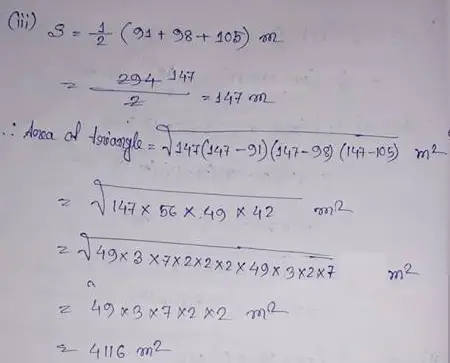 (iii) S = 1/2 (91 + 98 + 105) m
= 294 147 / 2 = 147 m
∴ Area of triangle = √147(147-91)(147-98)(147-105) m²
= √147 × 56 × 49 × 42 m²
= √49×3×7×2×2×2×49×3×2×7 m²
= 49×3×7×2×2 m²
= 4116 m²